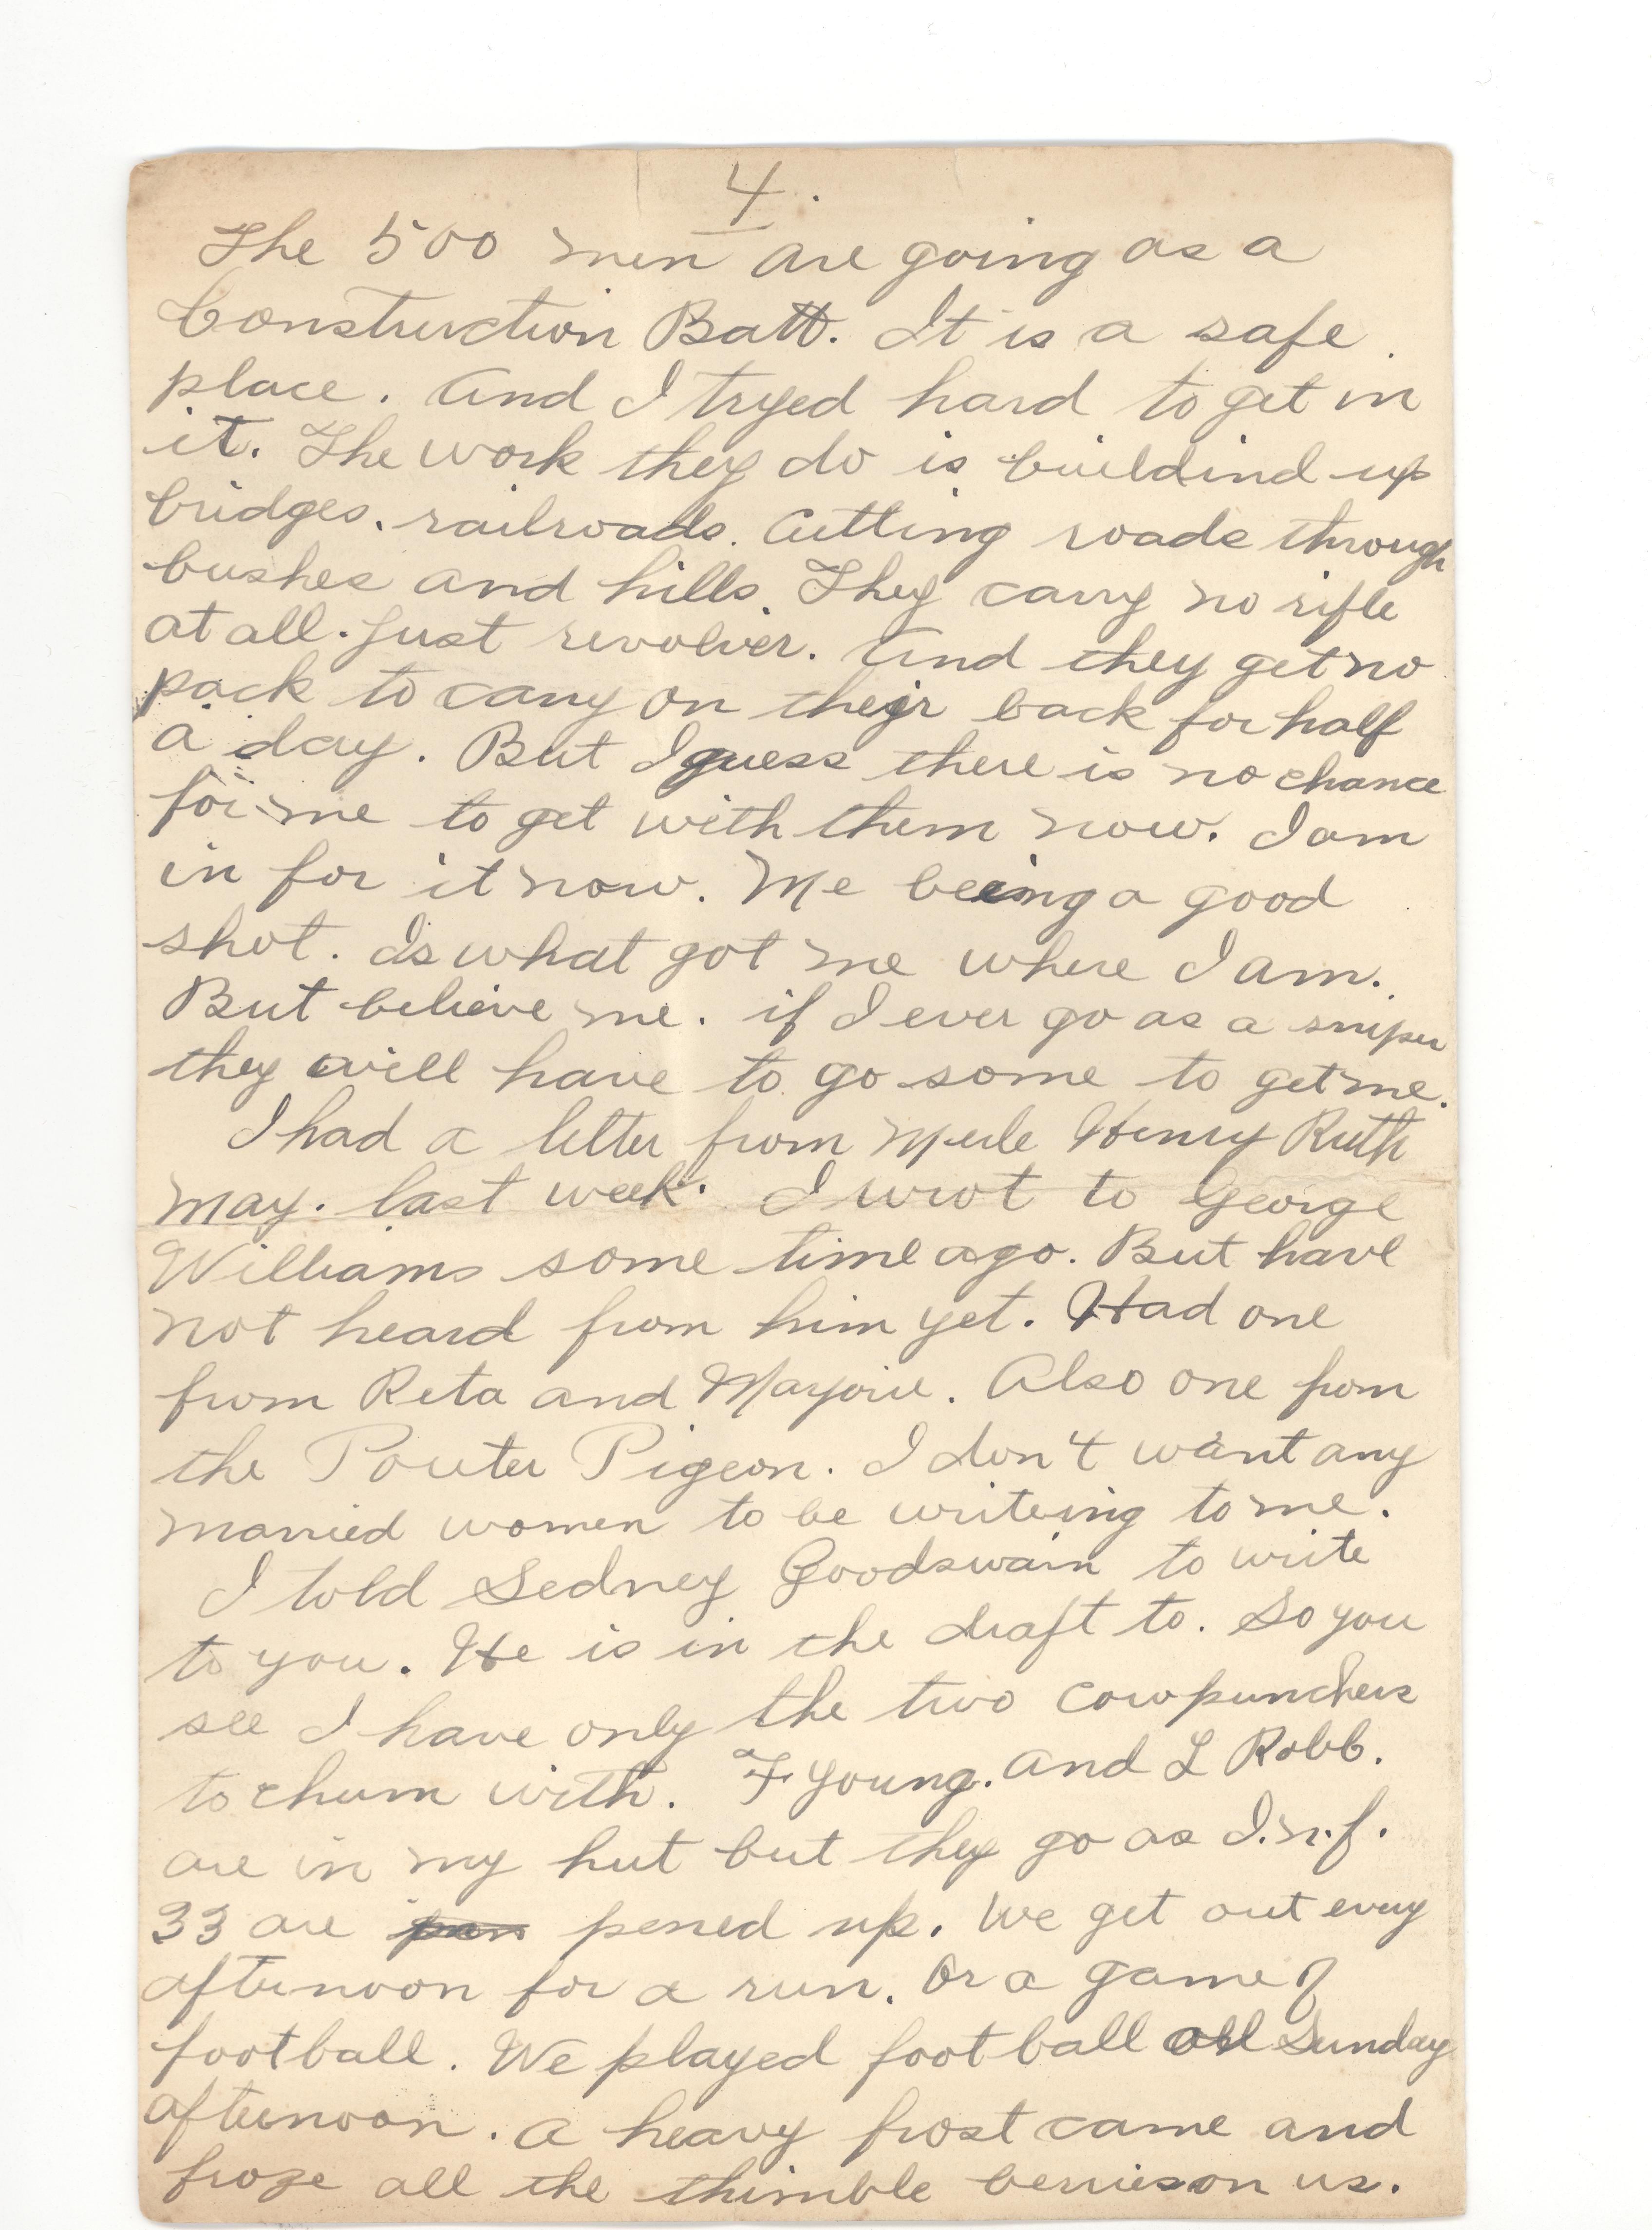 4.
The 500 men are going as a
Construction Batt. It is a safe
place. And I tryed hard to get in
it. The work they do is buildind up
bridges. railroads. Cutting roads through
bushes and hills. They carry no rifle
at all. Just revolver. And they get no
pack to carry on their back for half
a day. But I guess there is no chance
for me to get with them now. I am
in for it now. Me being a good
shot. Is what got me where I am.
But believe me. if I ever go as a sniper
they will have to go some to get me.
I had a letter from Merle Henry Ruth
May. last week. I wrot to George
Williams some time ago. But have
not heard from him yet. Had one
from Reta and Marjorie. Also one from
the Pouter Pigeon. I don't want any
married women to be writeing to me.
I told Sedney Goodswain to write
to you. He is in the draft to. So you
see I have only the two cowpunchers
to chum with. F Young. and L Robb.
are in my hut but they go as I.n.f.
33 are pen pened up. We get out every
afternoon for a run. Or a game of
football. We played foot ball all Sunday
afternoon. A heavy frost came and
froze all the thimble berries on us.